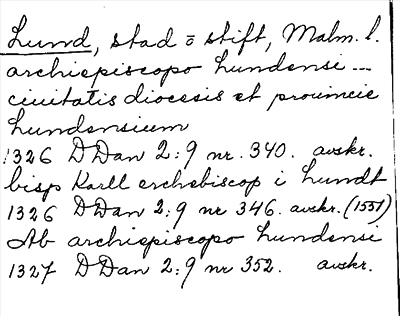 Lund, stad o stift, Malm. l.
archiepiscopo lundensi ...
ciuitatis diocesis et prouincie
lundensium
1326 DDan 2:9 nr. 340. avskr.
bisp Karll erchebiscop i Lundt
1326 DDan 2:9 nr 346. avskr. (1551)
Ab archiepiscopo lundensi
1327 DDan 2:9 nr 352. avskr.